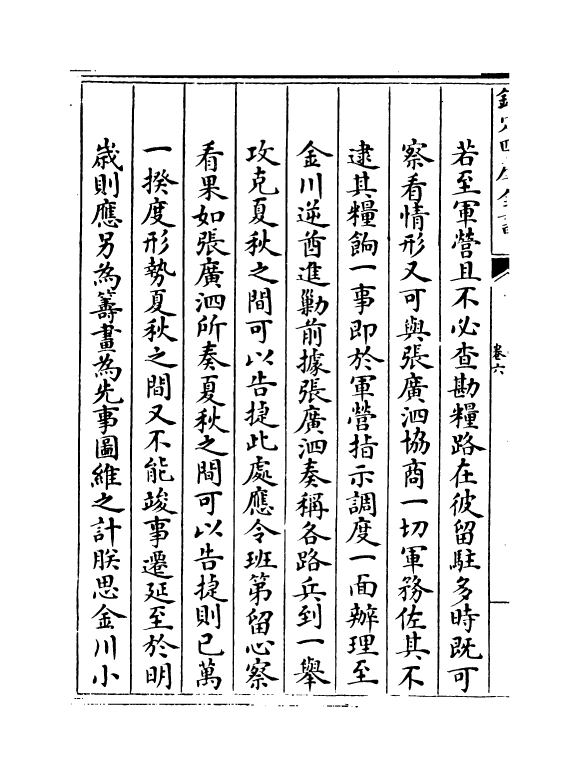 欽定四庫全書
卷六
若至軍營且不必查勘糧路在彼留駐多時既可
察看情形又可與張廣泗協商一切軍務佐其不
逮其糧餉一事即於軍營指示調度一面辦理至
金川逆酋進勦前據張廣泗奏稱各路兵到一舉
攻克夏秋之間可以告捷此處應令班第留心察
看果如張廣泗所奏夏秋之間可以告捷則已萬
一揆度形勢夏秋之間又不能竣事遷延至於明
歲則應另為籌畫為先事圖維之計朕思金川小